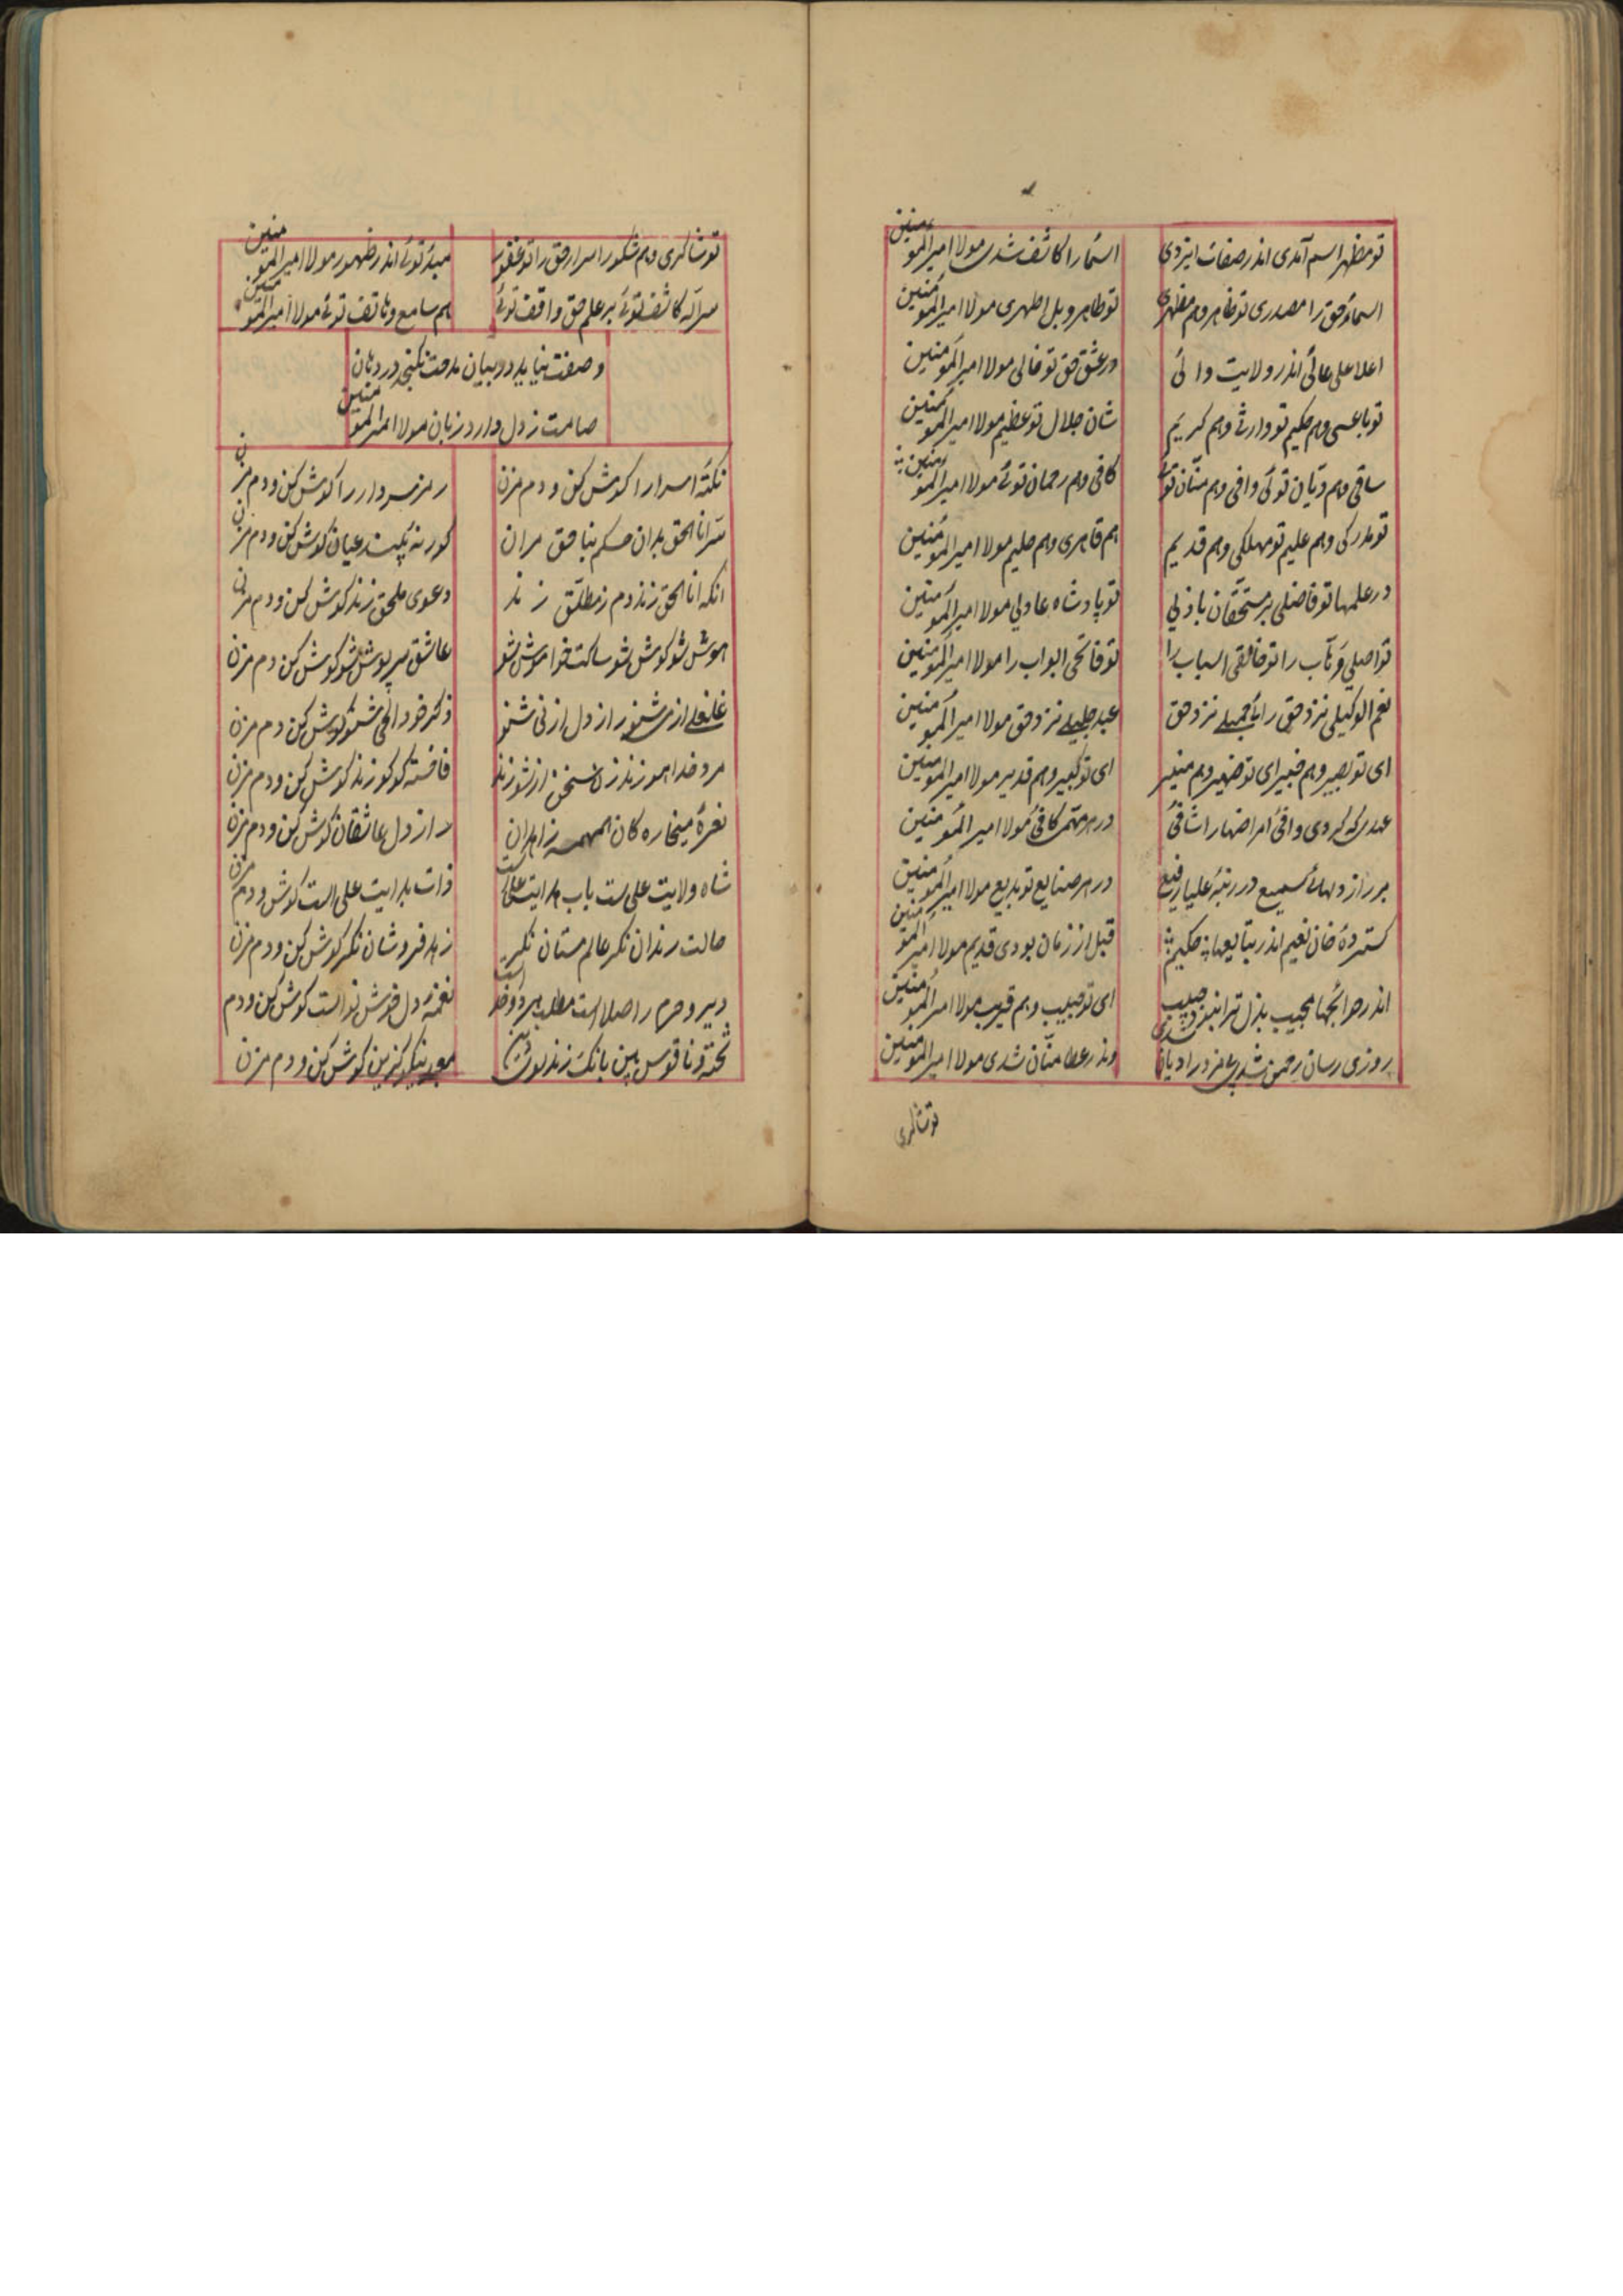 تو مظهر اسم آمدی اندر صفات ایزدی اسما را کاشف شدی مولا امیرالمؤمنین
اسماء حق را مصدری تو ظاهر و هم مظهری تو طاهر و بل اطهری مولا امیرالمؤمنین
اعلا علی عالی اندر ولایت والی در عشق حق تو مولا امیرالمؤمنین
تو باعثی و هم حکیم تو وارثی و هم کریم شان جلال تو عظیم مولا امیرالمؤمنین
ساقی و هم دیان توئی وافی و هم منّان توئی کافی و هم رحمان توئی مولا امیرالمؤمنین
تو مدرکی و هم علیم تو مهلکی و هم قدیم هم قاهری و هم حلیم مولا امیرالمؤمنین
در علمها تو فاضلی بر مستحقان باذلی تو پادشاه عادلی مولا امیرالمؤمنین
تو اصلی را تو خالقی اسباب را تو فاتحی ابواب را مولا امیرالمؤمنین
نعم الوکیلی نزد حق نزد حق عبد جلیلی نزد حق مولا امیرالمؤمنین
ای تو بصیر و هم خبیر ای تو ضمیر و هم منیر ای تو کبیر و هم قدیر مولا امیرالمؤمنین
کردی وافی امراضها را شافی در هر مهم کافی مولا امیرالمؤمنین
بر راز دلهای سمیع در رتبه علیا رفیع در هر صنایع تو بدیع مولا امیرالمؤمنین
کسترده خان نعیم اندر حکیم قبل از زمان بودی قدیم مولا امیرالمؤمنین
اندر مجیب بذل ترا ای تو حبیب و هم قریب مولا امیرالمؤمنین
روزی رسان رحمن شدی شدی وندر عطا منّان شدی مولا امیرالمؤمنین
توشاکری
تو شاکری و هم شکور اسرار حق را تو غفور مبدء توئی اندر ظهور مولا امیرالمؤمنین
کاشف توئی بر علم حق واقف توئی هم سامع و هاتف توئی مولا امیرالمؤمنین
وصفت نیاید در بیان مدحت نکنجد در دهان
صامت ز دل دارد زبان مولا امیرالمؤمنین
نکته اسرار را کوش کن و دم مزن رمز را کوش کن و دم مزن
سرّ انا الحق بدان حکم حق مران کور نه عیان کوش کن و دم مزن
آنکه انا الحق زند دم ز مطلق زند دعوی ملحق زند کوش کن و دم مزن
هوش شو کوش شو ساکت خواموش شو عاشق سرپوش شو کوش کن دم مزن
از دل از نی شنو ذکر خود کوش کن دم مزن
مرد خدا هو زند فاخته کوکو زند کوش کن و دم مزن
نعره میخاره کان همهمه زاهدان راز دل عاشقان کوش کن و دم مزن
شاه ولایت علی ست باب هدایت علی است ذات بدایت علی است کوش و دم مزن
حالت رندان نکر عالم مستان نکر زهد فروشان نکر کوش کن و دم مزن
دیر و حرم را صلا است مطلب هر دو خدا است نغمه دل خوش نوا است کوش کن و دم
و ناقوس بین بانک زند کوش کن و دم مزن